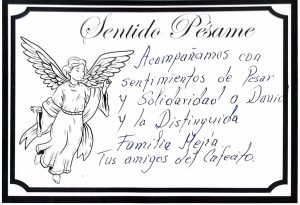 Sentido Pésame
Acompañamos con
sentimientos de Pesar
y Solidaridad a David
y la Distinguida
Familia Mejía
Tus amigos del Cafecito.